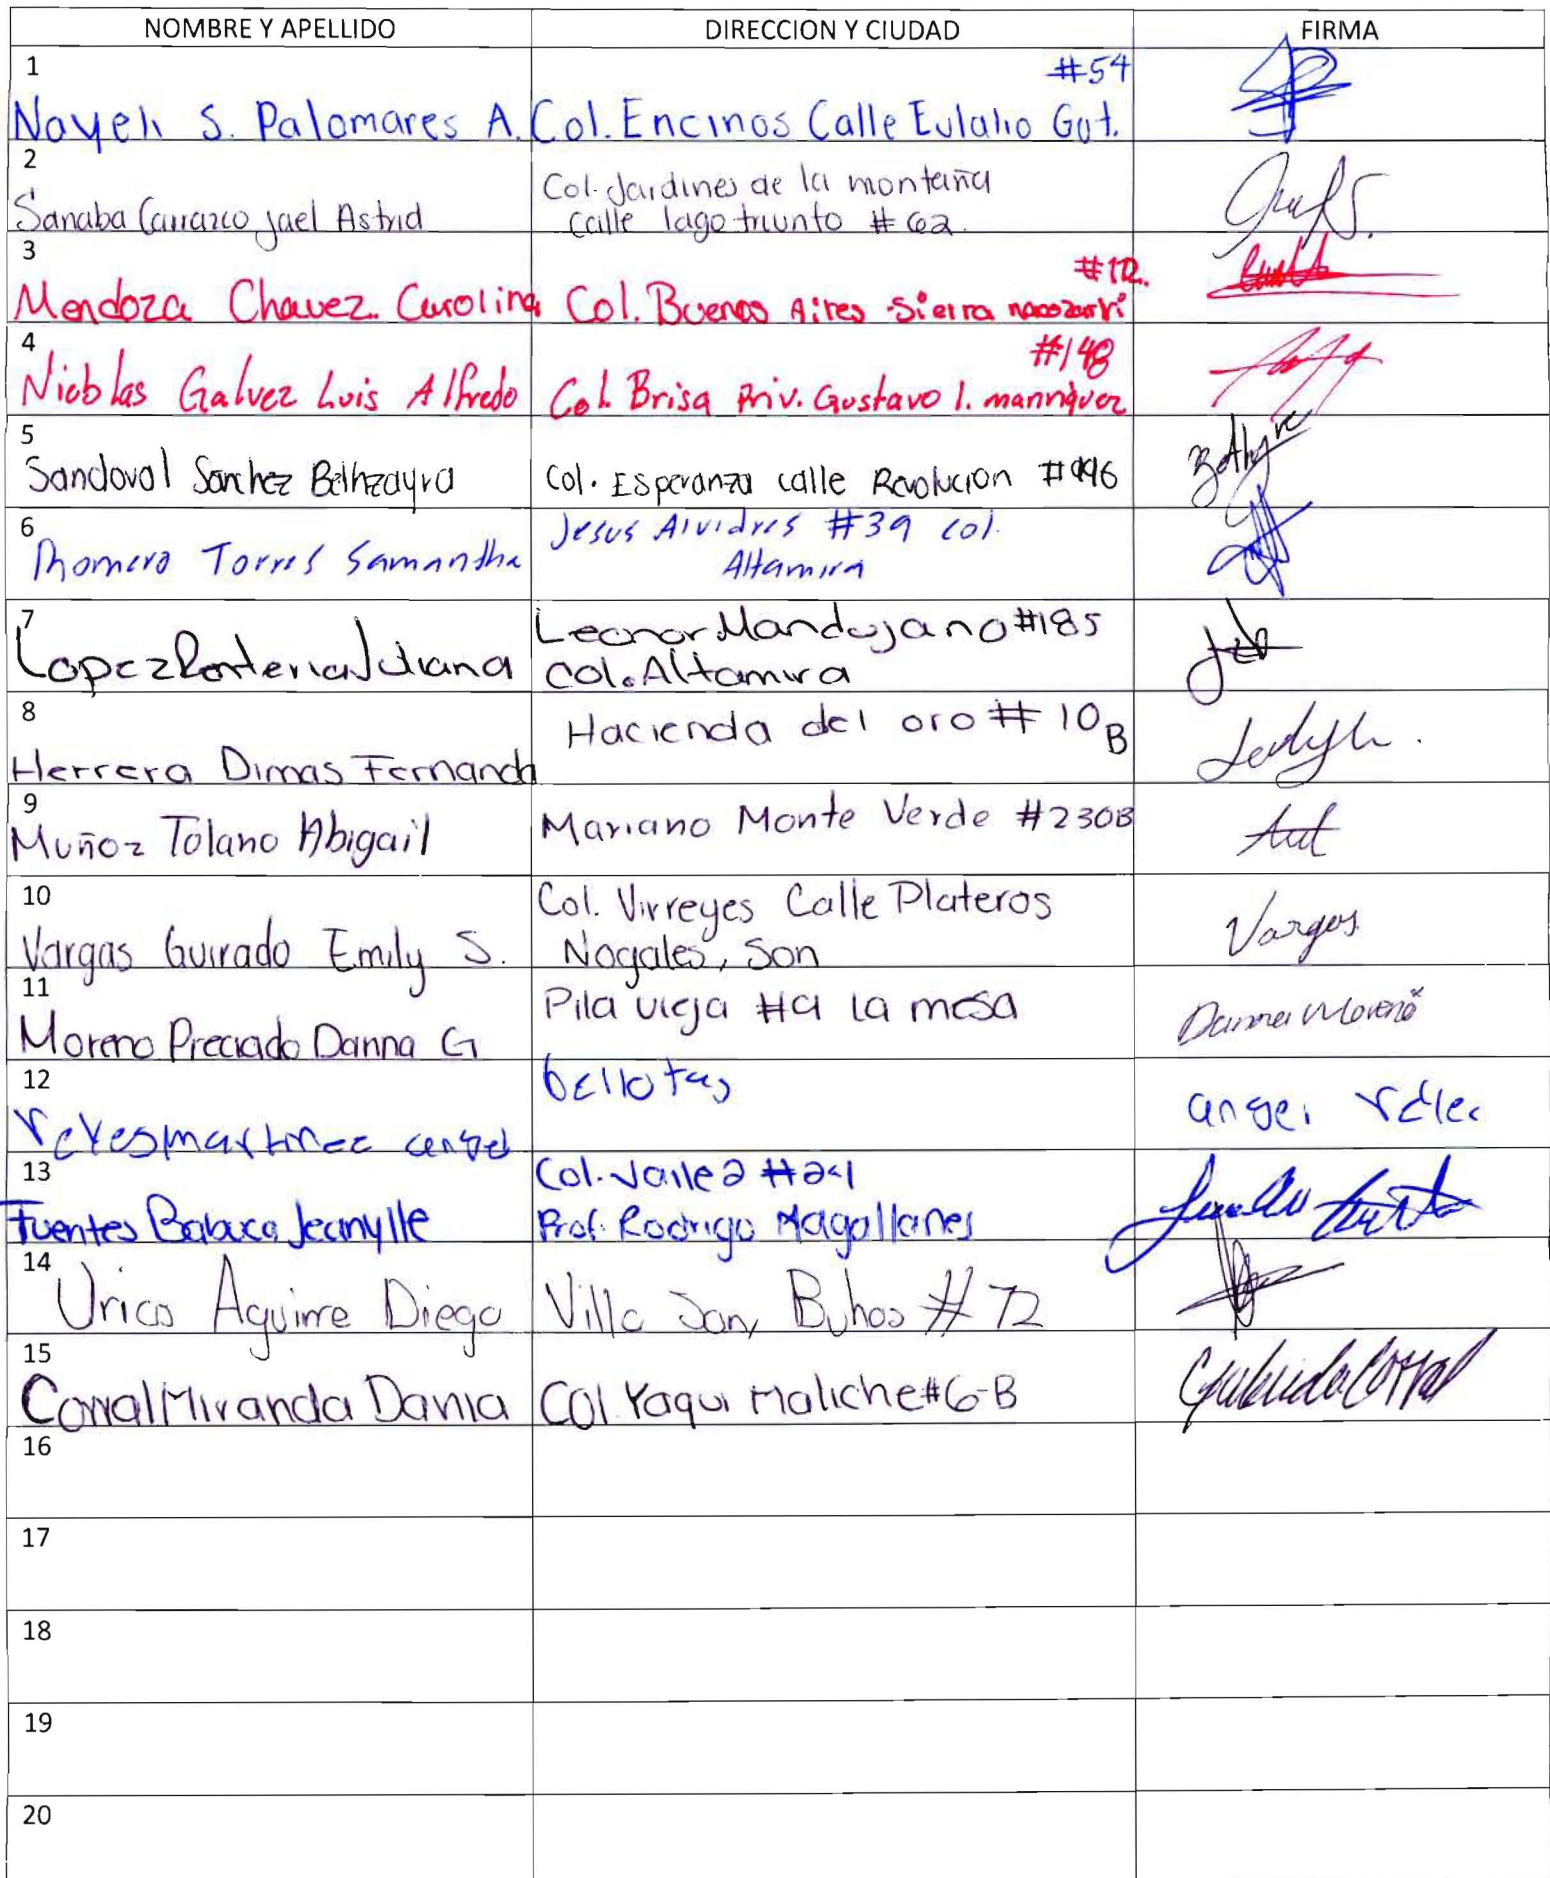 NOMBRE Y APELLIDO DIRECCION Y CIUDAD FIRMA
1
#54
Nayeli S. Palomares A. Col. Encinos Calle Eulalio Gut.
2
Sanaba Carrazco Jael Astrid
Col. Jardines de la montaña
Calle lago triunto #62
3
#112.
Mendoza Chavez Carolina Col. Buenos Aires Sierra nacozari
4
#148
Nieblas Galvez Luis Alfredo Col. Brisa Priv. Gustavo l. manriquez
5
Sandoval Sanchez Bethzayra Col. Esperanza calle Revolucion
6
Romero Torres Samantha
Jesus Alvidres #39 col.
Altamira
7
Lopez Renteria Juliana
Leonor Mandujano #185
Col. Altamira
8
Herrera Dimas Fernanda
Hacienda del oro #10B
9
Muñoz Tolano Abigail Mariano Monte Verde #230B
10
Vargas Guirado Emily S.
Col. Virreyes Calle Plateros
Nogales, Son
Vargas
11
Moreno Preciado Danna G
Pila vieja #9 la mesa
Danna Moreno
12
reyes martinez angel
bellotas
angel
13
Fuentes Jeanylle
Col. Valle 2
Prof. Rodrigo Magallanes
14
Urias Aguirre Diego Buhos #72
15
Corral Miranda Dania Col Yaqui Maliche #6-B
Corral
16
17
18
19
20